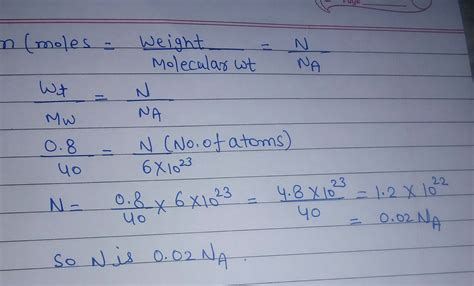 n (moles = Weight / Molecular wt = N / NA
Wt / Mw = N / NA
0.8 / 40 = N (No. of atoms) / 6×10²³
N = 0.8 / 40 × 6×10²³ = 4.8×10²³ / 40 = 1.2 × 10²²
= 0.02 NA
So N is 0.02 NA.